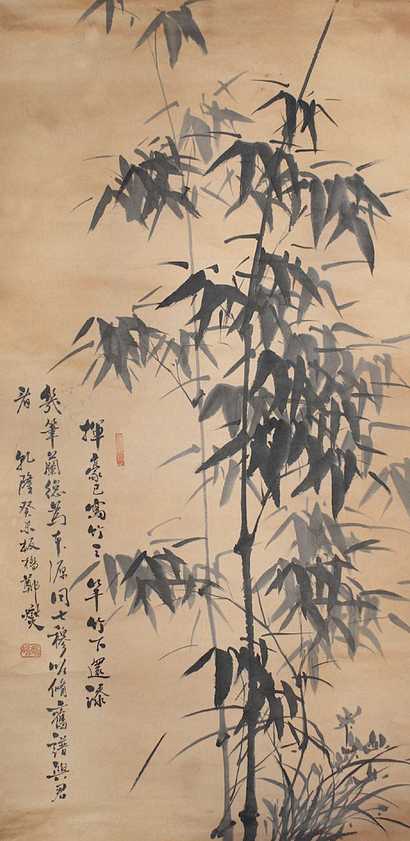 揮毫已寫竹三竿竹下還添
幾筆蘭總為本源同七穆欲修舊譜與君
看 乾隆癸未板橋鄭燮